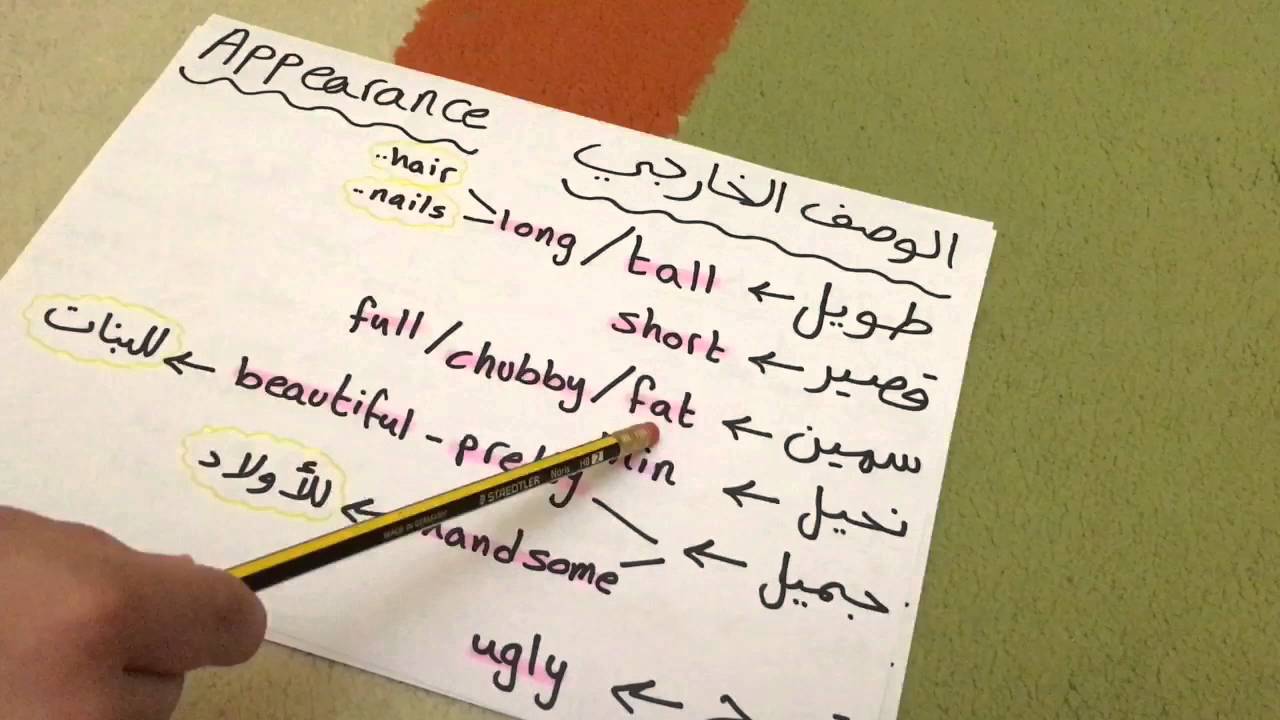 Appearance
الوصف الخارجي
..hair
..nails
طويل ← long / tall
قصير ← short
سمين ← full / chubby / fat
نحيل ←
جميل ← beautiful - pretty ← للبنات
handsome ← للأولاد
ugly ←
STAEDTLER Noris HB 2
MADE IN GERMANY